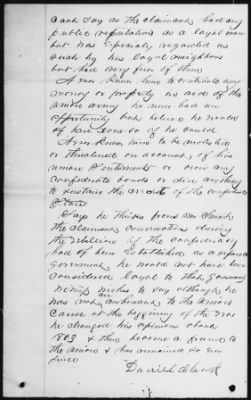 Cant say as the claimant had any
public reputation as a loyal man
but was especially regarded as
such by his loyal neighbors
but had very few of them
Never knew him to contribute any
money or property in aid of the
union army he never had an
opportunity but believe he would
of have done so if he could
Never knew him to be molested
or threatened on account of his
union sentiments or own any
confederate bonds or do anything
to sustain the credit of the confederate
States
Says he thinks from
the claimants conversations during
the rebellion if the confederacy
had of been established as a
Government he would not have been
considered loyal to that Government
to say although he
was not an to the union
cause at the beginning of the war
he changed his opinions about
1863 & then became a friend to
the union & has remained so
since
David Clark